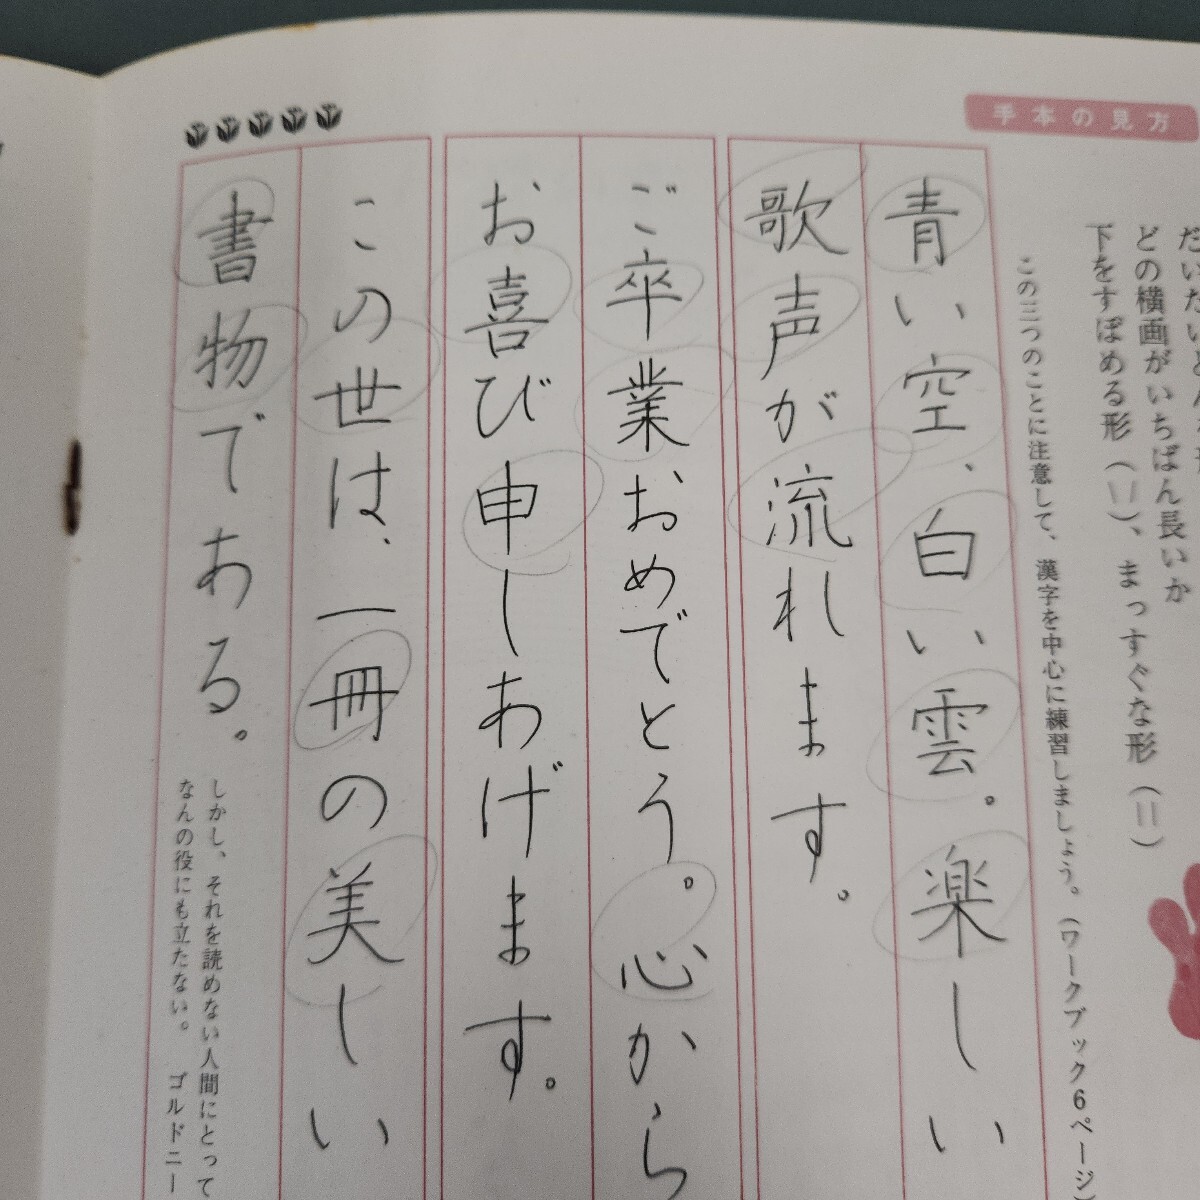 手本の見方
どの横画がいちばん長いか
下をすぼめる形（\ /）、まっすぐな形（||）
この三つのことに注意して、漢字を中心に練習しましょう。（ワークブック6ページ）
青い空、白い雲。楽しい
歌声が流れます。
ご卒業おめでとう。心から
お喜び申しあげます。
この世は、一冊の美しい
書物である。
しかし、それを読めない人間にとって
なんの役にも立たない。 ゴルドニー